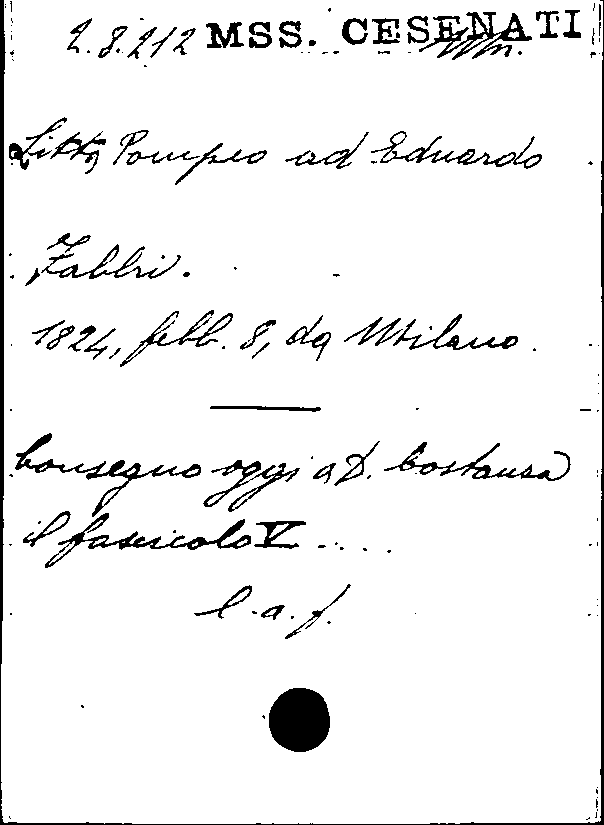 2.8.212 MSS. CESENATI
Litta Pompeo ad Eduardo
Fabbri.
1824, febb. 8, da Milano.
Consegno oggi a D. Costanza
il fascicolo V.....
l.a.f.